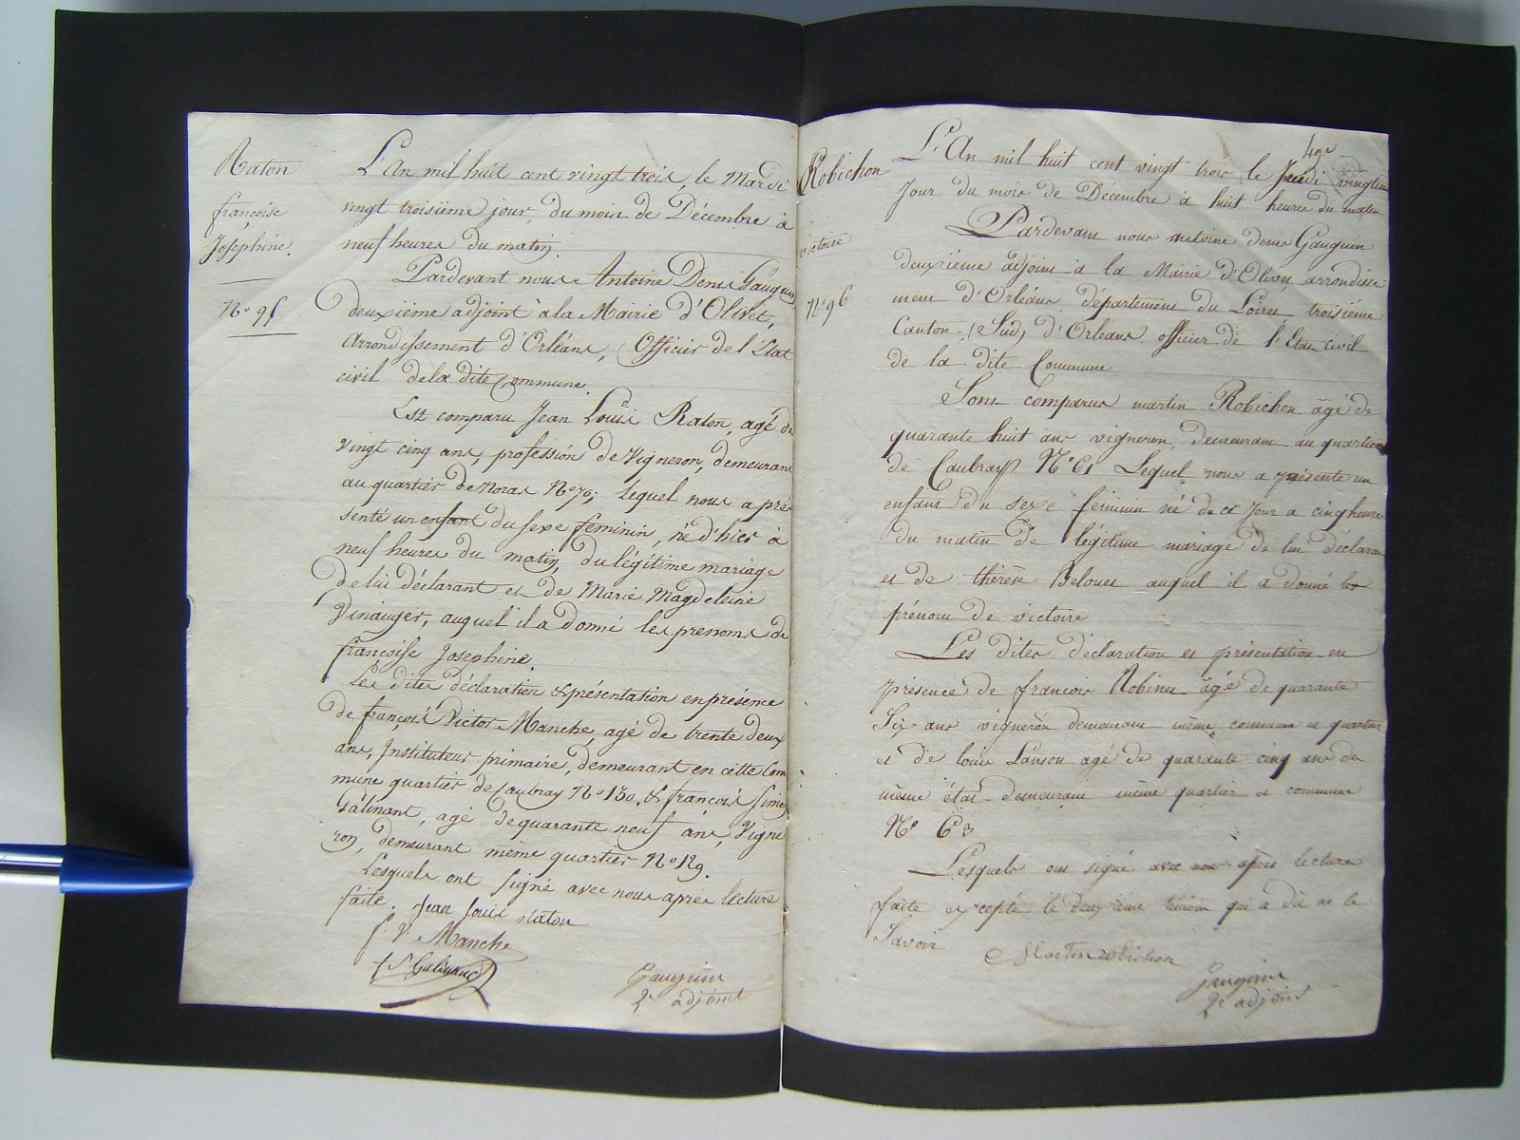 Raton
françoise
Josephine.
N.o 95
L'An mil huit cent vingt trois, le Mardi
vingt troisième jour, du mois de Décembre à
neuf heures du matin.
Pardevant nous Antoine Denis Gauguin
deuxième adjoint à la Mairie d'Olivet,
Arrondissement d'Orléans, Officier de l'Etat
civil de la dite Commune.
Est comparu Jean Louis Raton, agé de
vingt cinq ans, profession de Vigneron, demeurant
au quartier de Noras N.o 70; lequel nous a pré
senté un enfant du sexe féminin, né d'hier à
neuf heures du matin, du légitime mariage
de lui déclarant et de Marie Magdeleine
auquel il a donné les prenoms de
françoise Josephine.
Les dites déclaration & présentation en présence
de françois Victor Manche, agé de trente deux
ans, Instituteur primaire, demeurant en cette Com
mune quartier de Caubray N.o 130. & françois
Salinant, agé de quarante neuf ans, Vigne
ron, demeurant même quartier N.o 129.
Lesquels ont signé avec nous après lecture
faite. Jean Louis Raton
f. V. Manche
Gauguin
2e adjoint
49e
Robichon
victoire
N.o 96
L'An mil huit cent vingt trois le Jeudi
Jour du mois de Decembre à huit heures du matin
Pardevant nous antoine denis Gauguin
deuxieme adjoint à la Mairie d'Olivet arrondisse
ment d'Orléans département du Loiret troisième
Canton (Sud) d'Orleans officier de l'Etat civil
de la dite Commune
Sont comparus martin Robichon âgé de
quarante huit ans vigneron demeurant au quartier
de Caubray N.o 61 Lequel nous a présenté un
enfant du sexe féminin né de ce Jour a cinq heures
du matin de légitime mariage de lui déclarant
et de thérèse Belouet auquel il a donné les
prénom de victoire
Les dites déclaration et présentation en
présence de françois Robineau âgé de quarante
Six ans vigneron demeurant même commune et quartier
et de louis Lanson agé de quarante cinq ans du
même état demeurant même quartier et commune
N.o 63
Lesquels ont signé avec nous après lecture
faite excepté le deuxième témoin qui a dit ne le
Savoir
Martin robichon
Gauguin
2e adjoint